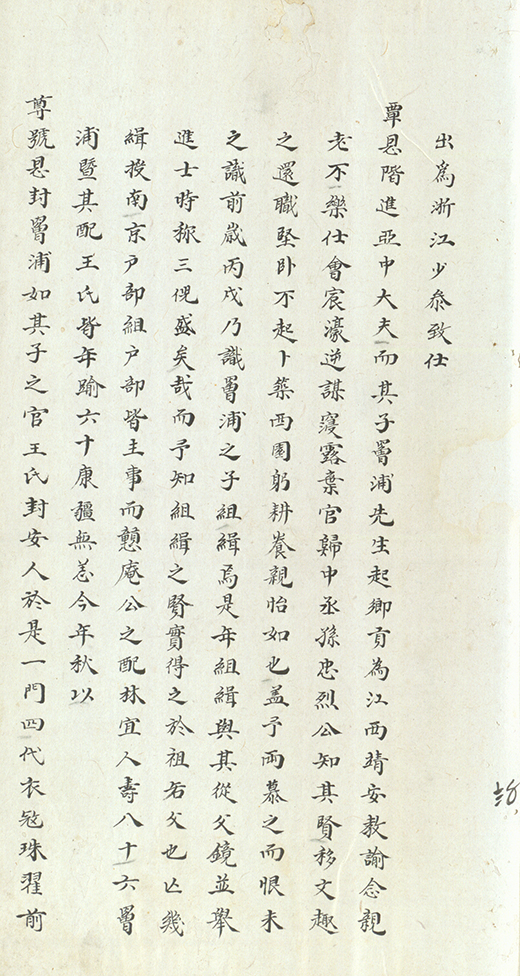 出為浙江少叅致仕
覃恩階進亞中大夫而其子曾浦先生起鄉貢為江西靖安教諭念親
老不樂仕會宸濠逆謀寖露棄官歸中丞孫忠烈公知其賢移文趣
之還職堅卧不起卜築西園躬耕養親怡如也盖予兩慕之而恨未
之識前歲丙戌乃識曾浦之子組緝焉是年組緝與其從父鏡並舉
進士時稱三倪盛矣哉而予知組緝之賢實得之於祖若父也亡幾
緝授南京戸部組戸部皆主事而戇庵公之配林宜人壽八十六曾
浦暨其配王氏皆年踰六十康彊無恙今年秋以
尊號恩封曾浦如其子之官王氏封安人於是一門四代衣冠珠翟前